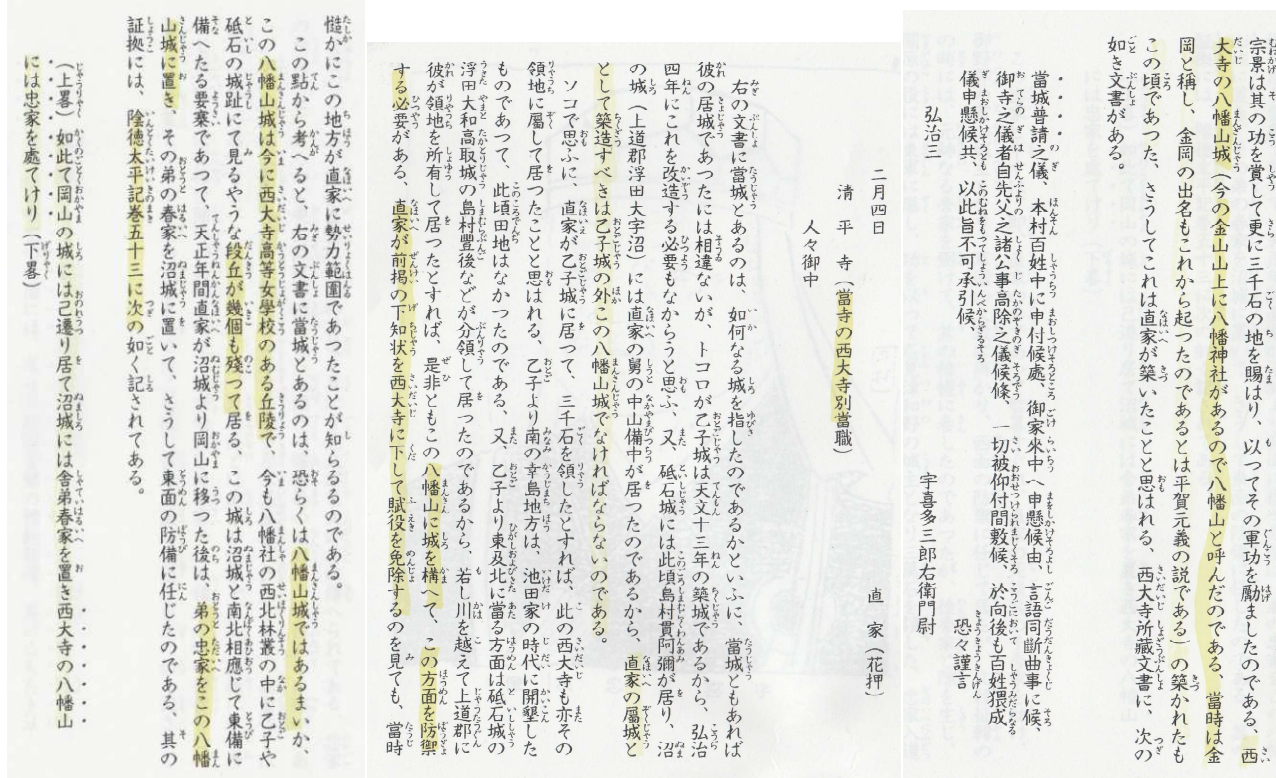 宗景は其の功を賞して更に三千石の地を賜はり、以つてその軍功を勵ましたのである、西
大寺の八幡山城（今の金山山上に八幡神社があるので八幡山と呼んだのである、當時は金
岡と稱し、金岡の出名もこれから起つたのであるとは平賀元義の説である）の築かれたも
この頃であつた、さうしてこれは直家が築いたことと思はれる、西大寺所藏文書に、次の
如き文書がある。
當城普請之儀、本村百姓中に申付候處、御家来中へ申懸候由、言語同斷曲事に候、
御寺之儀者自先父之諸公事高除之儀候條、一切被仰付間敷候、於向後も百姓猥成
儀申懸候共、以此旨不可承引候、恐々謹言
弘治三　宇喜多三郎右衛門尉
二月四日　直家（花押）
清平寺（當寺の西大寺別當職）
人々御中
右の文書に當城とあるのは、如何なる城を指したのであるかといふに、當城ともあれば
彼の居城であつたには相違ないが、トコロが乙子城は天文十三年の築城であるから、弘治
四年にこれを改造する必要もなからうと思ふ、又、砥石城には此頃島村貫阿彌が居り、沼
の城（上道郡浮田大字沼）には直家の舅の中山備中が居つたのであるから、直家の屬城と
として築造すべきは乙子城の外この八幡山城でなければならないのである。
ソコで思ふに、直家が乙子城に居つて、三千石を領したとすれば、此の西大寺も亦その
領地に屬して居つたことと思はれる、乙子より南の幸島地方は、池田家の時代に開墾した
ものであつて、此頃田地はなかつたのである、又、乙子より東及北に當る方面は砥石城の
浮田大和高取城の島村豊後などが分領して居つたのであるから、若し川を越えて上道郡に
彼が領地を所有して居つたとすれば、是非ともこの八幡山に城を構へて、この方面を防禦
する必要がある、直家が前掲の下知状を西大寺に下して賦役を免除するのを見ても、當時
慥かにこの地方が直家に勢力範圍であつたことが知らるるのである。
この點から考へると、右の文書に當城とあるのは、恐らくは八幡山城ではあるまいか、
この八幡山城は今に西大寺高等女學校のある丘陵で、今も八幡社の西北林叢の中に乙子や
砥石の城趾にて見るやうな段丘が幾個も殘つて居る、この城は沼城と南北相應じて東備に
備へたる要塞であつて、天正年間直家が沼城より岡山に移つた後は、弟の忠家をこの八幡
山城に置き、その弟の春家を沼城に置いて、さうして東面の防備に任じたのである、其の
証拠には、陰徳太平記巻五十三に次の如く記されてある。
（上畧）如此て岡山の城には己遷り居て沼城には舎弟春家を置き西大寺の八幡山
には忠家を處てけり（下畧）